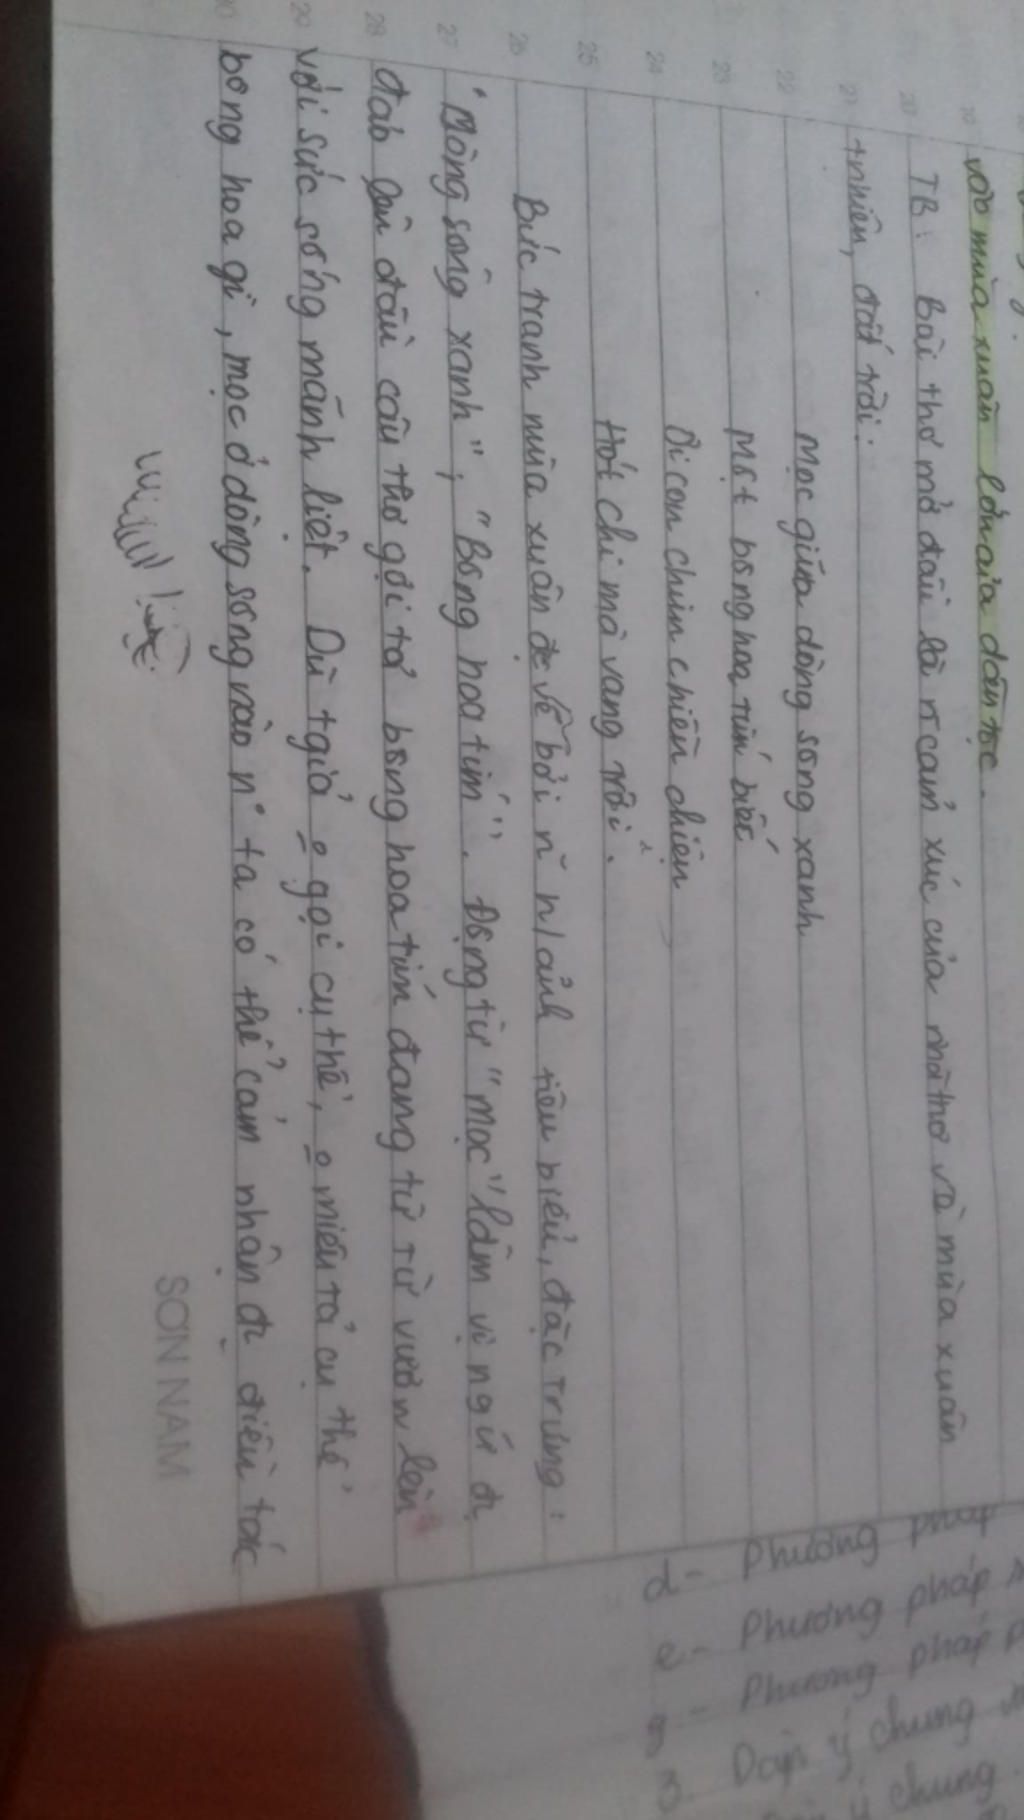 vào mùa xuân lớn của dân tộc.
TB: Bài thơ mở đầu là cảm xúc của nhà thơ về mùa xuân
tnhiên, đất trời:
Mọc giữa dòng sông xanh
Một bông hoa tím biếc
Ơi con chim chiền chiện
Hót chi mà vang trời.
Bức tranh mùa xuân đc vẽ bởi n~ h/ảnh tiêu biểu, đặc trưng:
"Dòng sông xanh", "Bông hoa tím". Động từ "mọc" làm vị ngữ đc
đảo lên đầu câu thơ gợi tả bông hoa tím đang từ từ vươn lên
với sức sống mãnh liệt. Dù tgiả o gọi cụ thể, o miêu tả cụ thể
bông hoa gì, mọc ở dòng sông nào ta có thể cảm nhận đc điều tác
SON NAM
19
20
21
22
23
24
25
26
27
28
29
d- Phương pháp
e- Phương pháp
g- Phương pháp
3. Dàn ý chung
ý chung